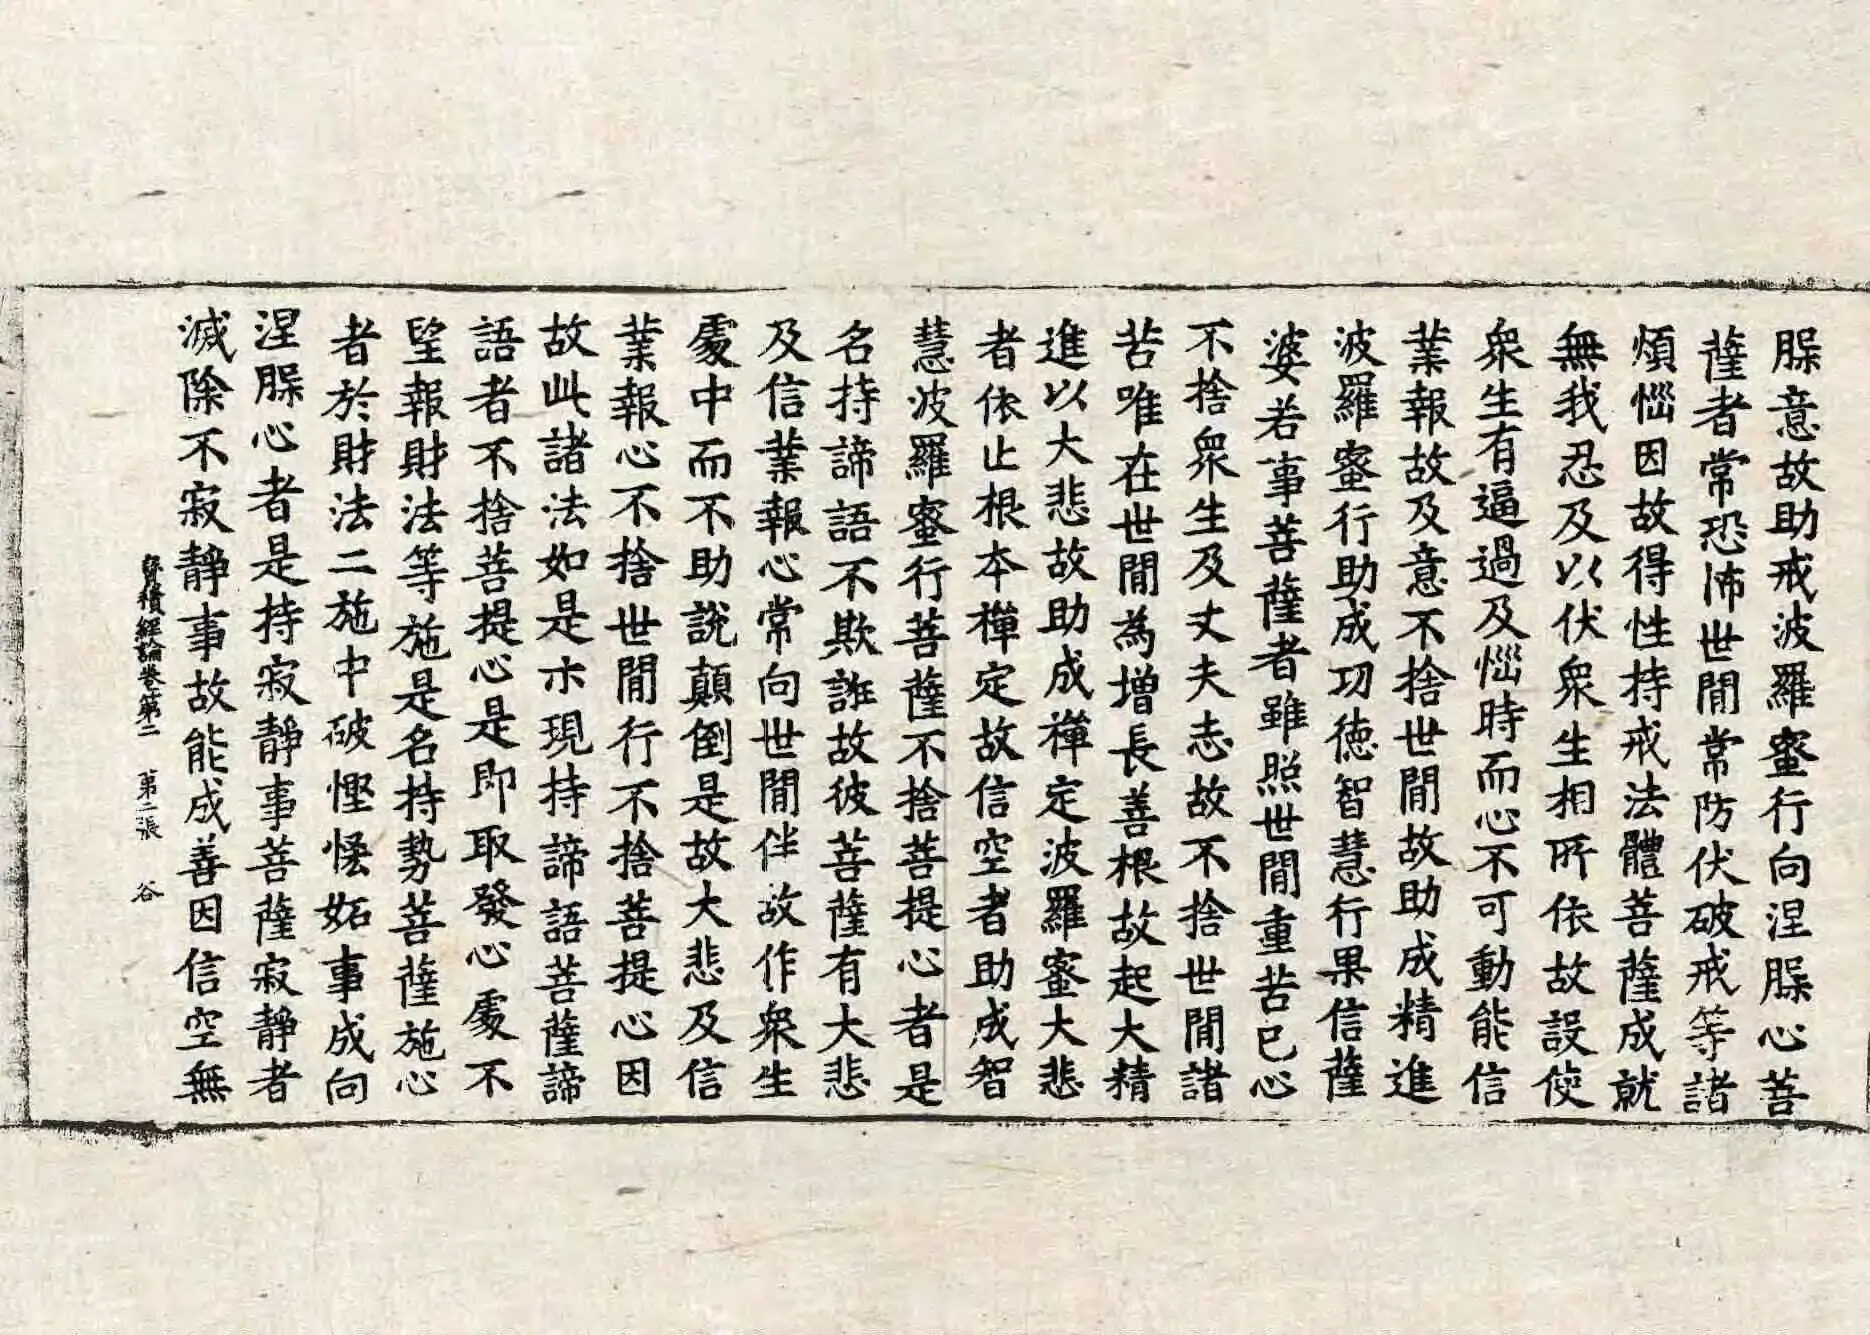 槃意故助戒波羅蜜行向涅槃心菩
薩者常恐怖世閒常防伏破戒等諸
煩惱因故得性持戒法體菩薩成就
無我忍及以伏衆生相所依故設使
衆生有逼過及惱時而心不可動能信
業報故及意不捨世閒故助成精進
波羅蜜行助成功德智慧行果信薩
婆若事菩薩者雖照世閒重苦已心
不捨衆生及丈夫志故不捨世閒諸
苦唯在世閒為增長善根故起大精
進以大悲故助成禪定波羅蜜大悲
者依止根本禪定故信空者助成智
慧波羅蜜行菩薩不捨菩提心者是
名持諦語不欺誑故彼菩薩有大悲
及信業報心常向世閒伴故作衆生
處中而不助說顛倒是故大悲及信
業報心不捨世閒行不捨菩提心因
故此諸法如是示現持諦語菩薩諦
語者不捨菩提心是即取發心處不
望報財法等施是名持勢菩薩施心
者於財法二施中破慳悋妬事成向
涅槃心者是持寂靜事菩薩寂靜者
滅除不寂靜事故能成善因信空無
寶積經論卷第二 第二張 谷